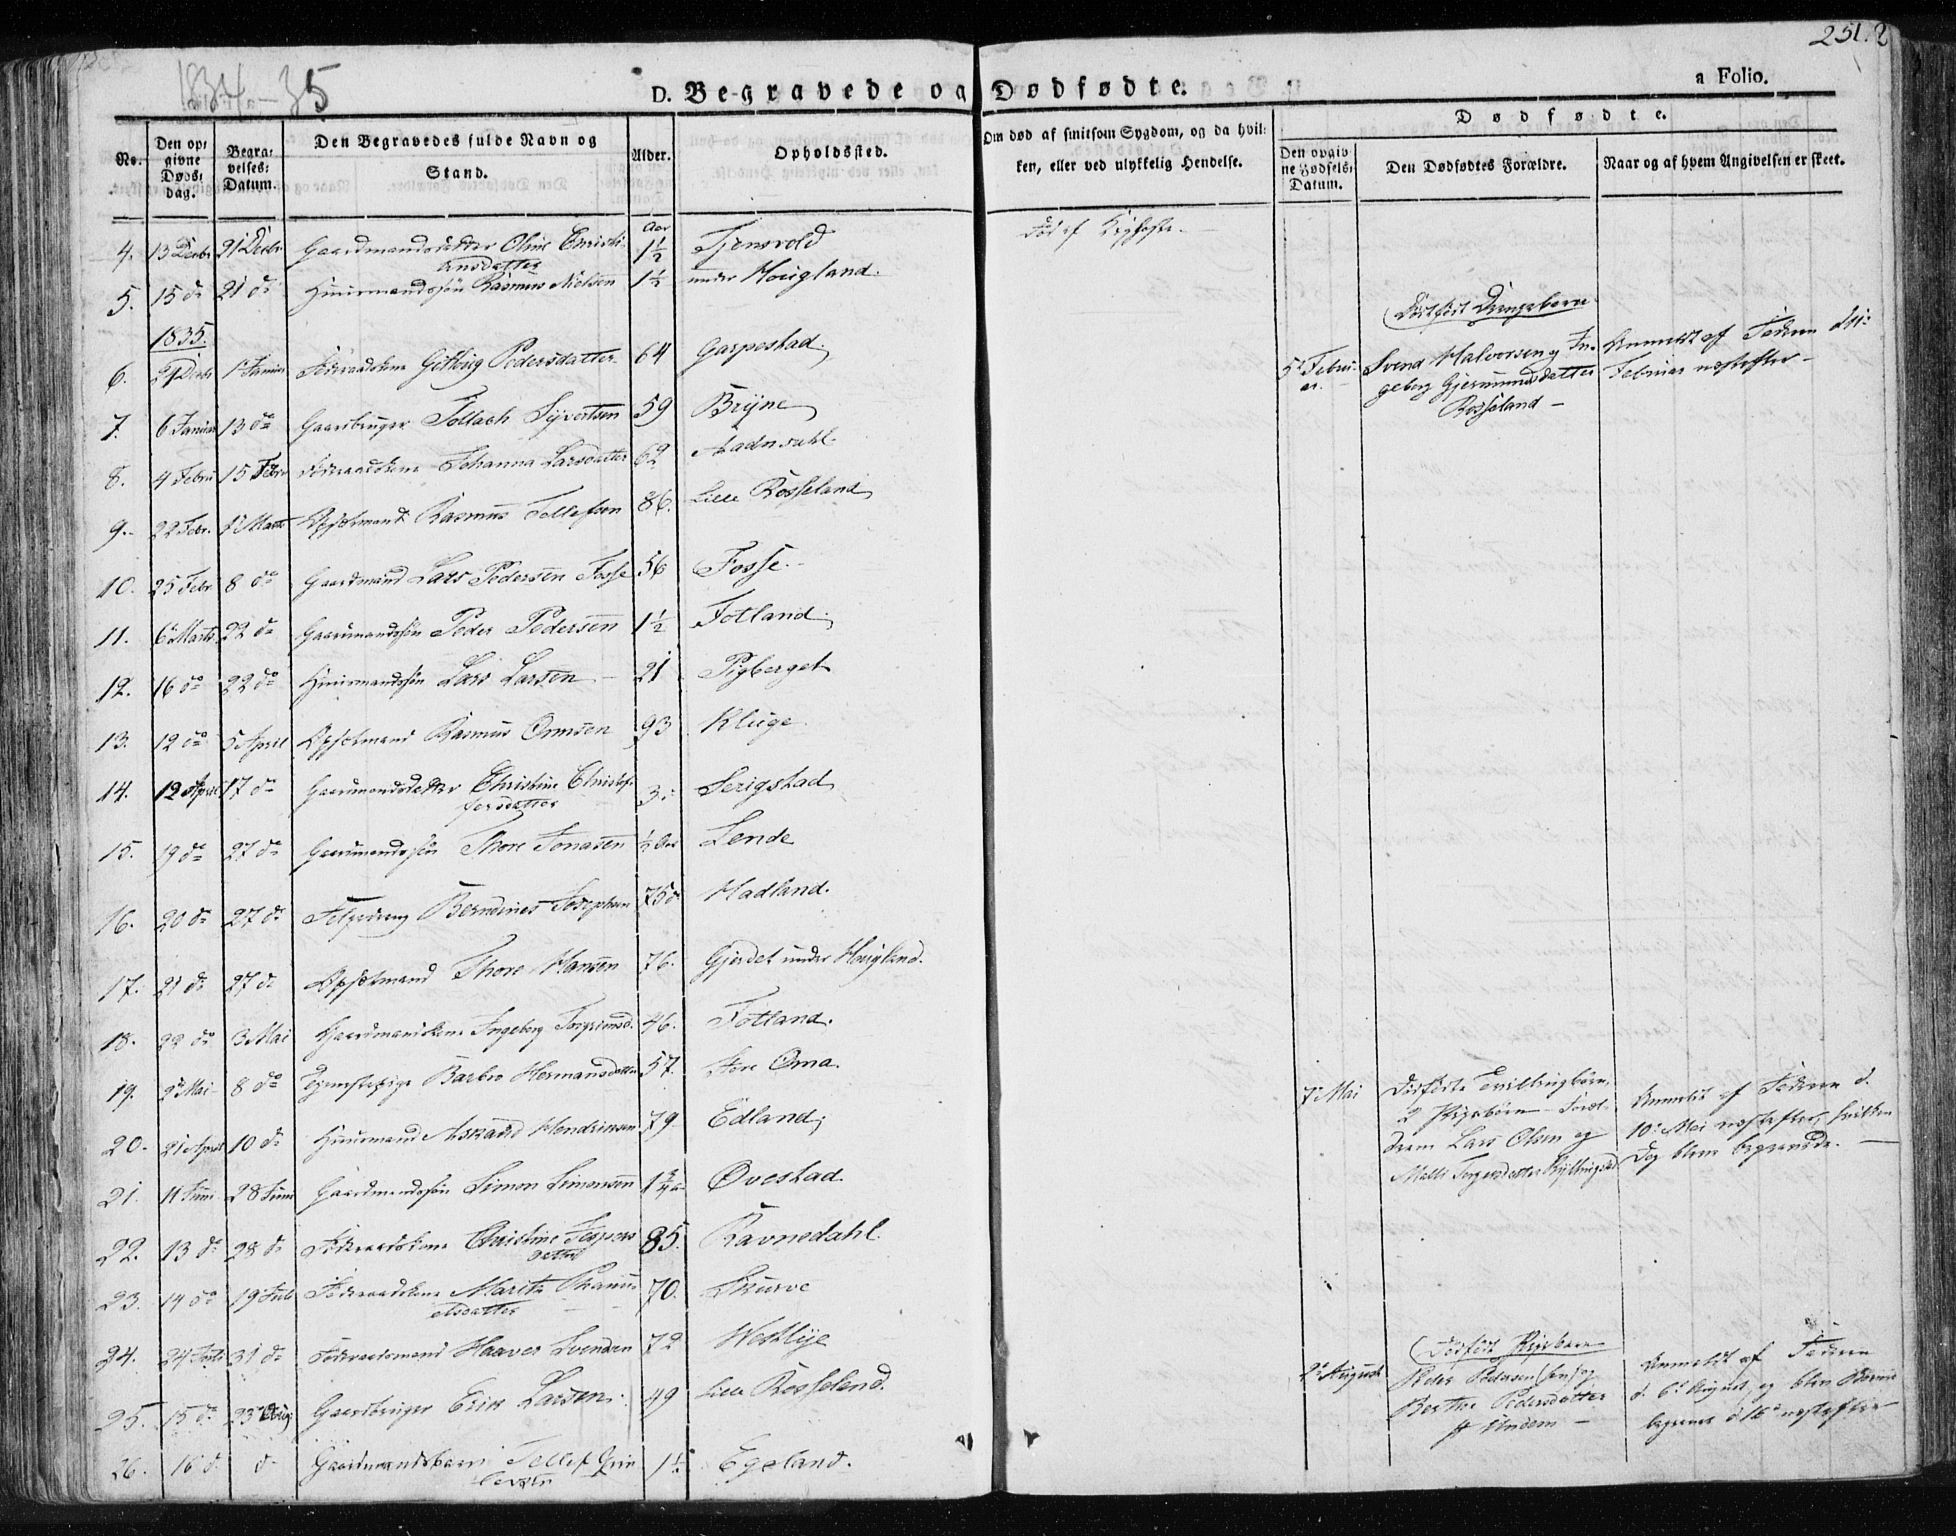 1834-35
251.
D. Begravede og Dødfødte.
a Folio.
No.
Den opgivne Døds-dag.
Begravelses-Datum.
Den Begravedes fulde Navn og Stand.
Alder.
Opholdssted.
Om død af smitsom Sygdom, og da hvilken, eller ved ulykkelig Hendelse.
Dødfødte.
Den opgivne Fødsels-Datum.
Den Dødfødtes Forældre.
Naar og af hvem Angivelsen er skeet.
4. 13 Decbr 21 Decbr Gaardmandsdatter Oline Christiansdatter Aar 1½ Tjensvold
5. 15 do 21 do Huusmandssøn Rasmus Nielsen 1½ under Hougland.
1835.
6. 1 Januar Føderaadskone Pedersdatter 64 Garpestad
7. 6 Januar 13 do Gaardbruger Tollach Syvertsen 59 Bryne
8. 4 Febru 15 Febr Føderaadskone Johanna Larsdatter 62
9. 22 Febr. 1 Marts Rasmus Tollefsen 86. Lille Rosseland
10. 25 Febr 8 do Gaardmand Lars Pedersen Fosse 56 Fosse.
11. 6 Marts 22 do Gaardmandssøn Peder Pedersen 1½ Fotland
12. 16 do 22 do Huusmandssøn Lars Larsen 21 Pigberget
13. 12 do 5 April Rasmus Ormsen 93 Kluge
14. 12 April 17 do Gaardmandsdatter Christine Christofersdatter 3 Serigstad
15. 19 do 27 do Gaardmandssøn Thore Jonasen ½ Aar Lende
16. 20 do 27 do Berndines Josephsen 75 Hadland.
17. 21 do 27 do Thore Hansen 76. Gjerdet under Hougland.
18. 22 do 3 Mai Gaardmandskone Ingeborg Torgrimsd. 46. Fotland.
19. 2 Mai 8 do Barbro Hermansdatter 57. Store Oma.
20. 21 April 10 do Huusmand Askaud Hendriksen 79 Edland
21. 11 Juni 28 Juni Gaardmandssøn Simon Simonsen 1¾ Øvestad
22. 13 do 28 do Føderaadskone Christine datter 85. Ravnedahl.
23. 14 do 19 Juli Føderaadskone Marita datter 70. Skurve
24. 24 Juli 31 do Føderaadsmand Haaver Svendsen 72 Westlye
25. 15 do 23 Aug Gaardbruger Erik Larsen 49 Lille Rosseland.
26. 16 d. d. Gaardmandsbarn Tollef 1½ Egeland.
Død af Kighoste.
Dødfødt Drengebarn
5 Februar. Svend Halvorsen og Ingeborg Gjermundsdatter Rosseland
Anmeldt af Faderen d. Februar nestefter
7 Mai Dødfødte Tvillingbørn, 2 Pigebørn Foreldrene Lars Olsen og Malli
Anmeldt af Faderen d. 10 Mai nestefter, hvilken Dag bleve begravede.
2 August Dødfødt Pigebarn Peder Pedersen og Berthe Pedersdatter
Anmeldt af Faderen d. 6 August, og blev Barnet begravet d 16 nestefter